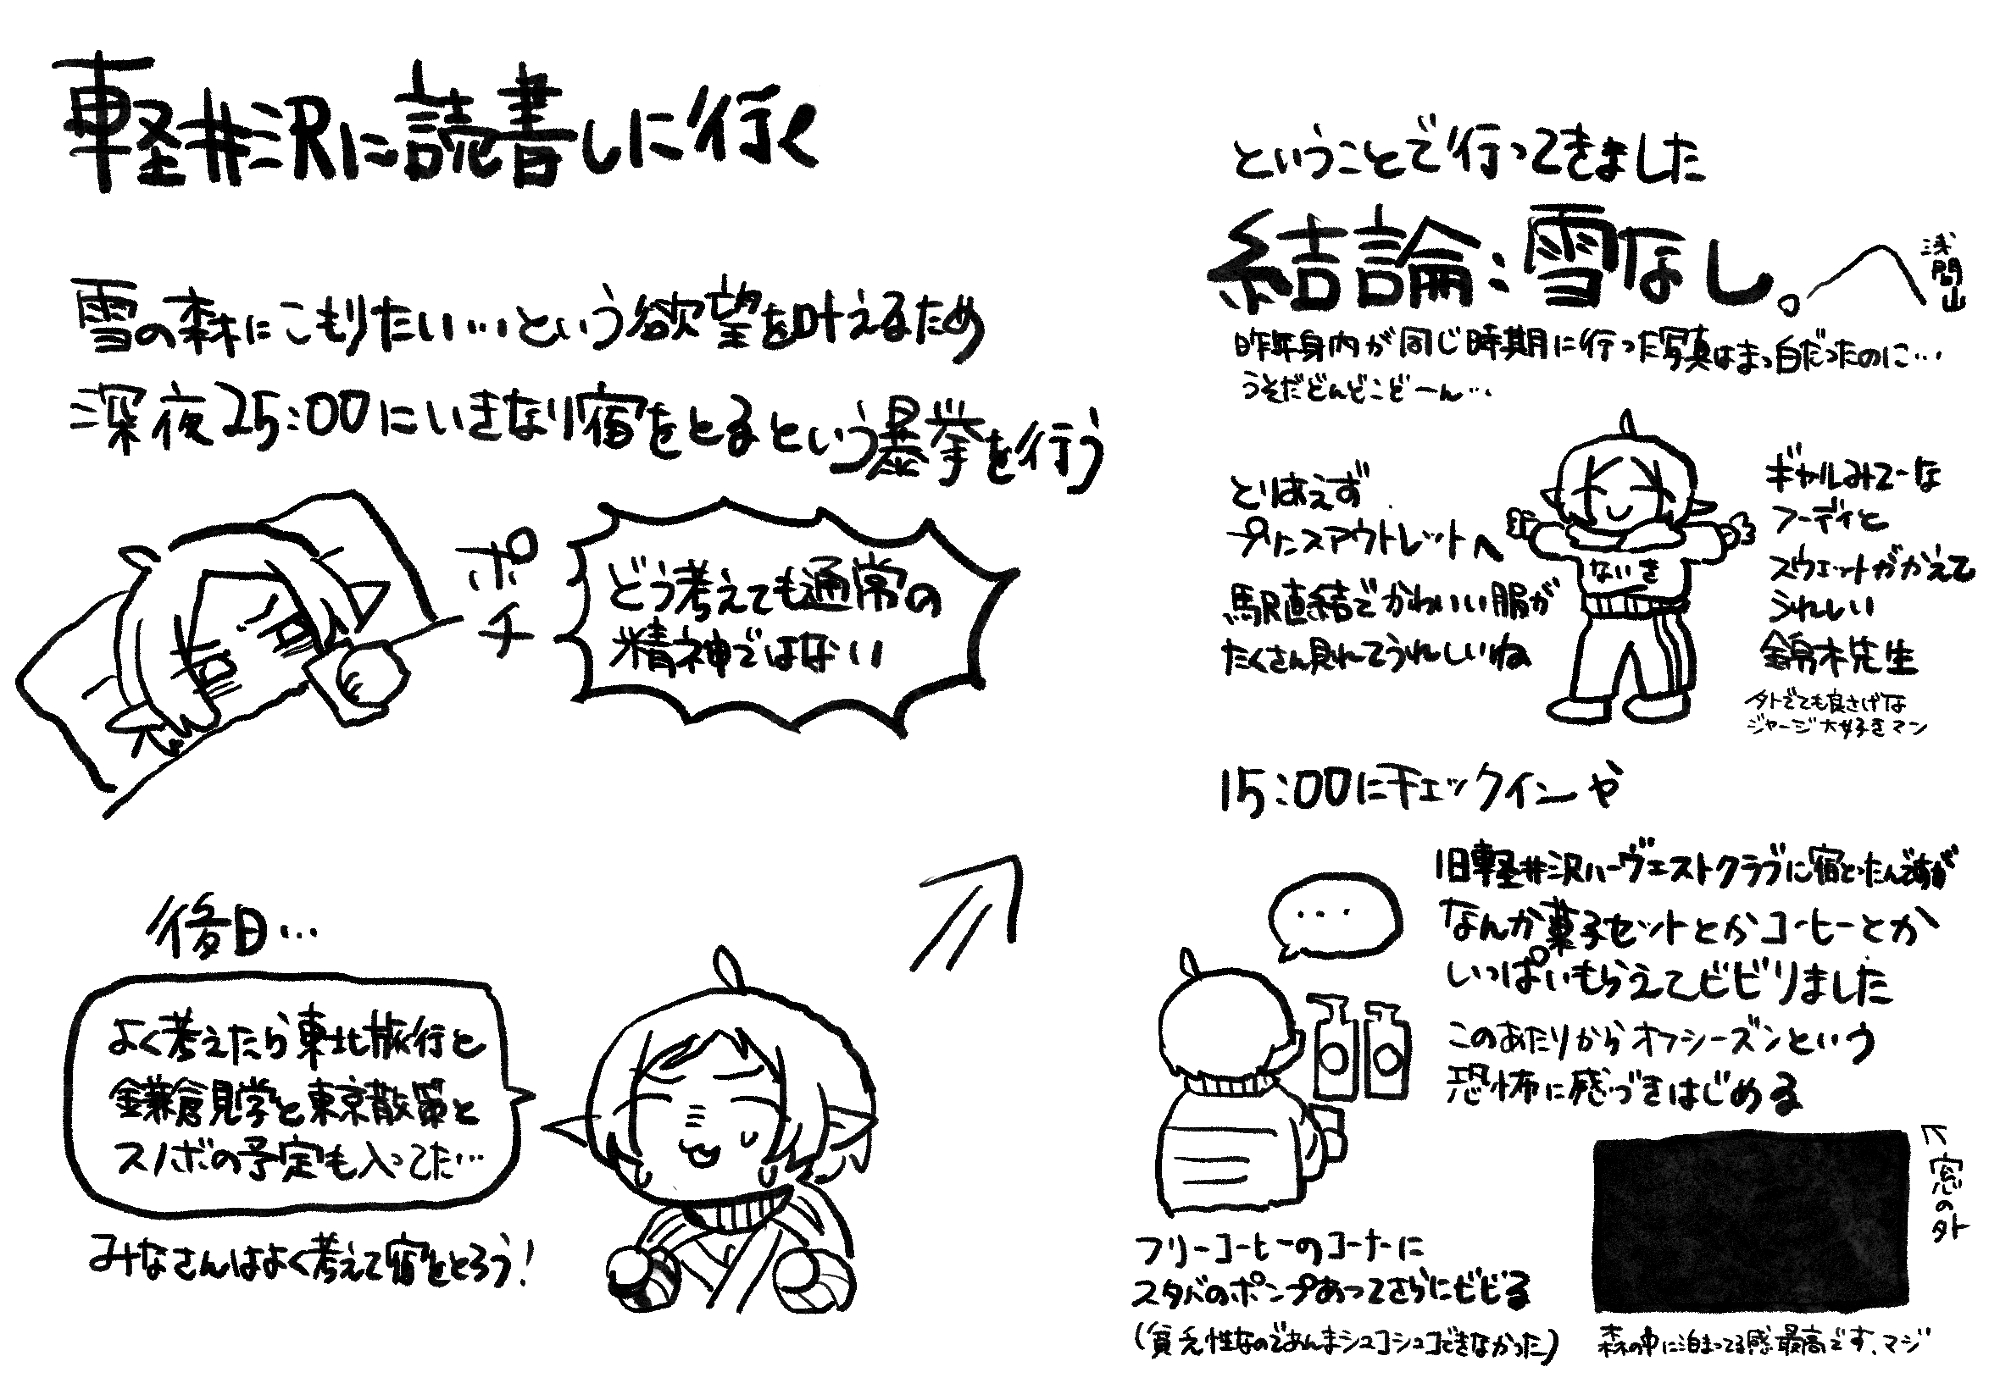 軽井沢に読書しに行く
雪の森にこもりたい…という欲望を叶えるため
深夜25:00にいきなり宿をとるという暴挙を行う
ポチ
どう考えても通常の
精神ではない
後日…
よく考えたら東北旅行と
鎌倉見学と東京散策と
スノボの予定も入ってた…
みなさんはよく考えて宿をとろう!
ということで行ってきました
結論:雪なし。
浅間山
昨年身内が同じ時期に行った写真はまっ白だったのに…
うそだどんどこどーん…
とりあえず
プリンスアウトレットへ
駅直結でかわいい服が
たくさん見れてうれしいね
ないき
ギャルみてーな
フーディと
スウェットがかえて
うれしい
錦木先生
外でても良さげな
ジャージ大好きマン
15:00にチェックインや
旧軽井沢ハーヴェストクラブに宿とったんですが
なんか菓子セットとかコーヒーとか
いっぱいもらえてビビりました
このあたりからオフシーズンという
恐怖に感づきはじめる
…
フリーコーヒーのコーナーに
スタバのポンプあってさらにビビる
(貧乏性なのであんまシュコシュコできなかった)
窓の外
森の中に泊まってる感、最高です、マジ